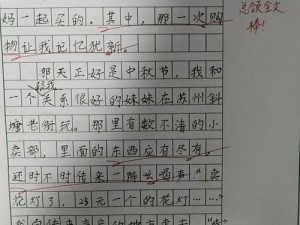 妈一起买的。其中，那一次购
物让我记忆犹新。
总领全文
棒！
那天正好是中秋节，我和
一个关系很好的妹妹在苏州斜
塘老街玩。那里有数不清的小
卖部，里面的东西应有尽有。
还时不时传来一阵么喝声“卖
花灯了，25元一个的花灯……